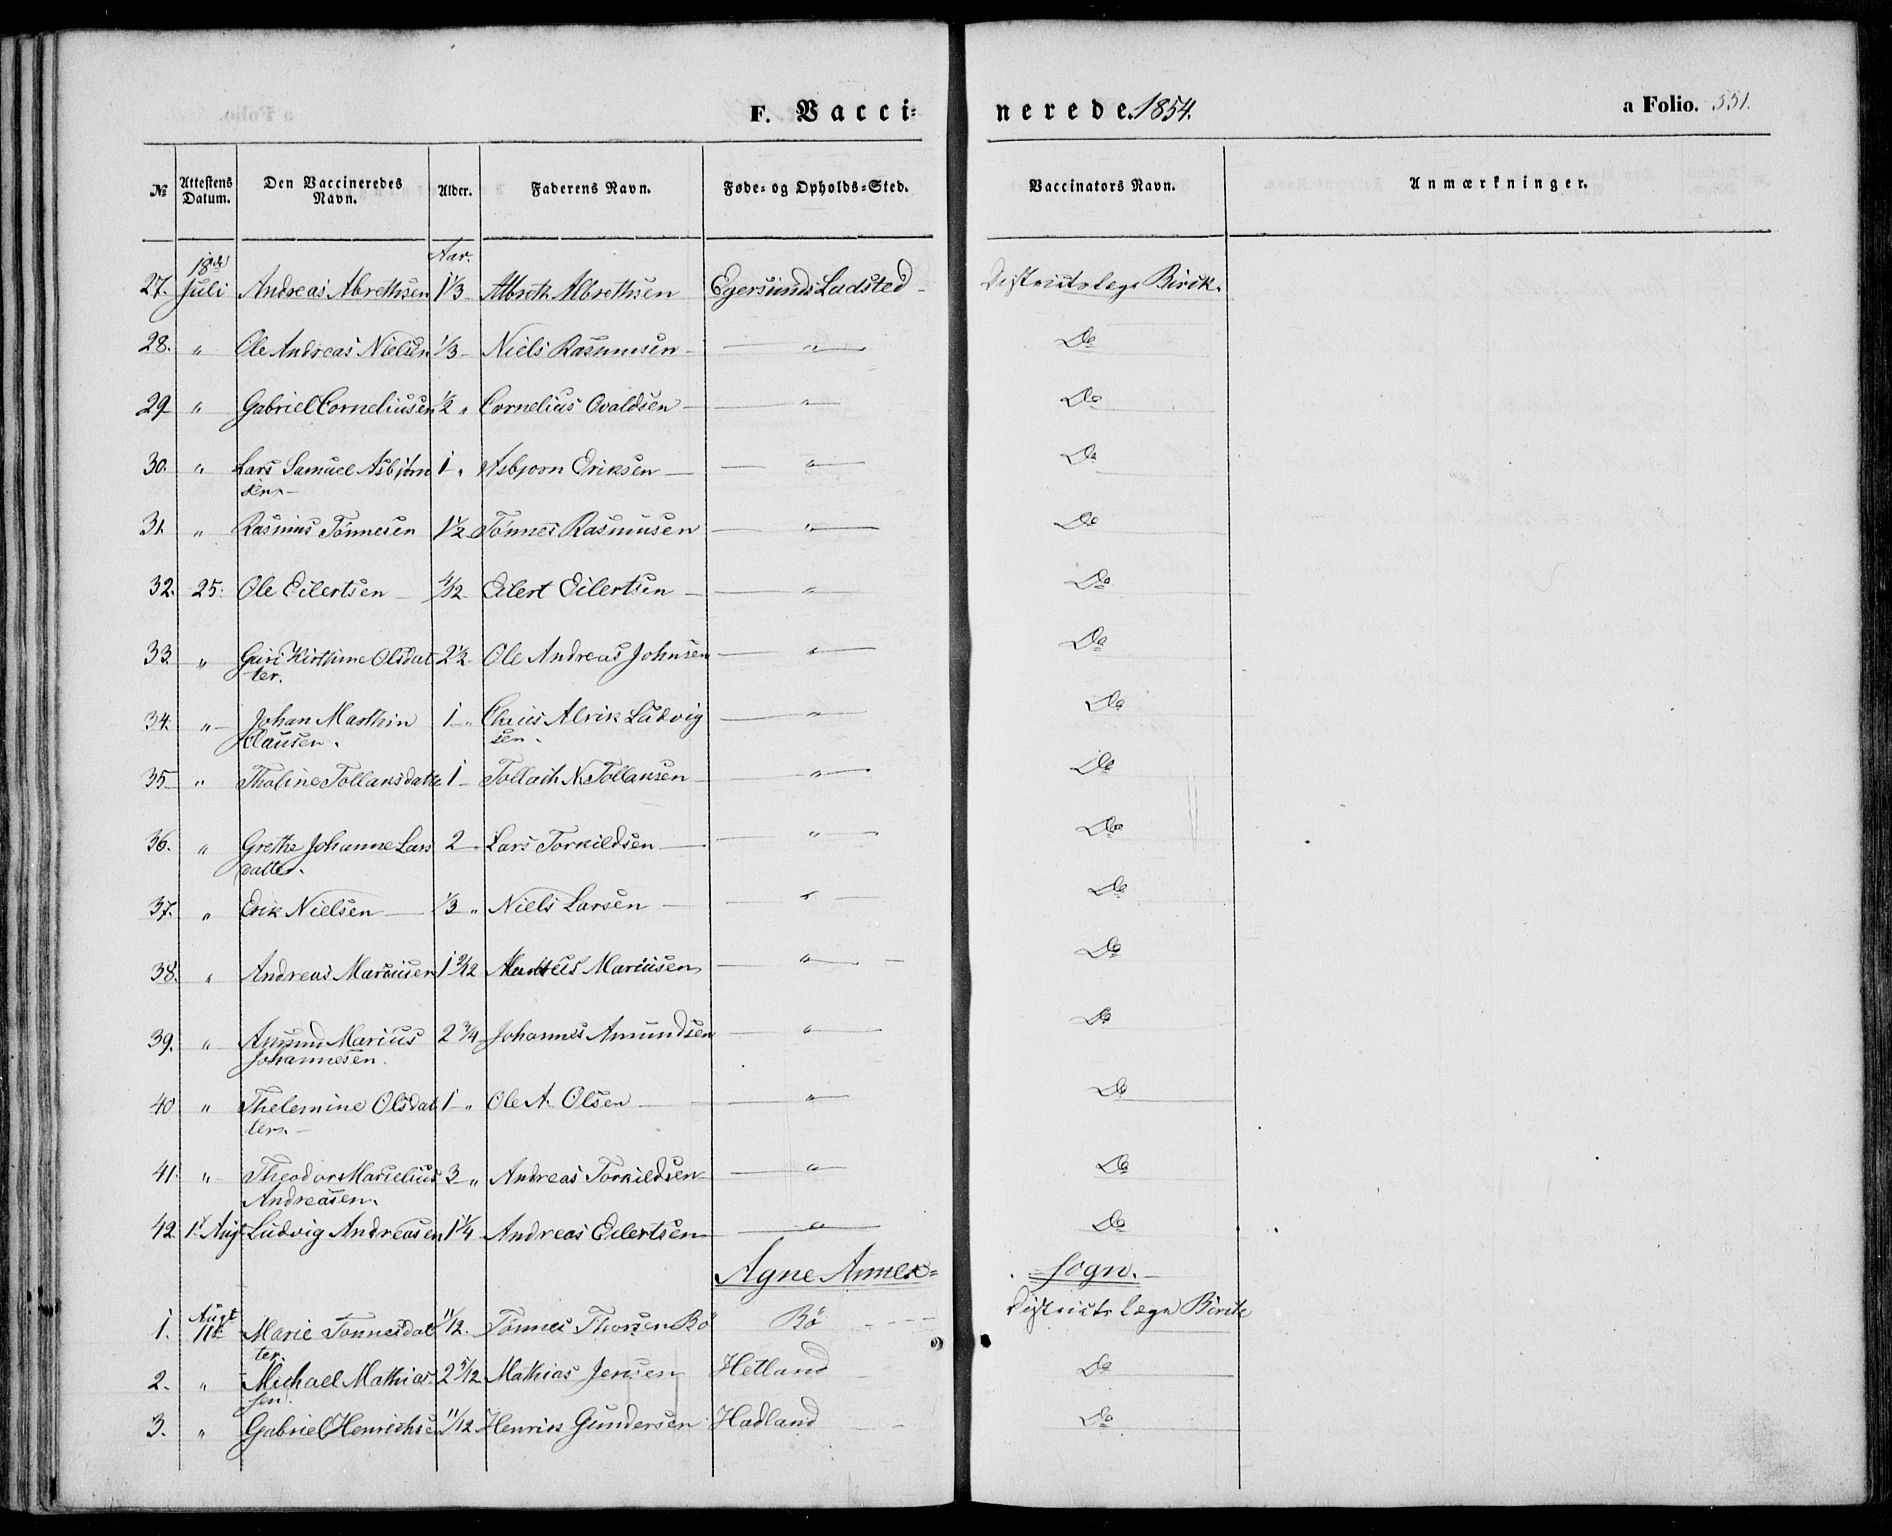 F. Vacci= nerede. 1854. a Folio. 551.
№ Attestens Datum. Den Vaccineredes Navn. Alder. Faderens Navn. Føde= og Opholds=Sted. Vaccinators Navn. Anmærkninger.
18de Aar.
27. Juli Andreas Abrethsen 1 1/3 Albreth Albrethsen Egersunds Ladsted Districtslæge Birch.
28. " Ole Andreas Nielsen 1/3 Niels Rasmusen " Do
29 " Gabriel Corneliusen 1/2 " Cornelius Ovaldsen " Do
30. " Lars Samuel Asbjørn 1 " Asbjorn Eriksen " Do
sen
31. " Rasmus Tønnesen 1 1/2 Tønnes Rasmusen " Do
32. 25. Ole Eilertsen 1/2 Eilert Eilertsen " Do
33. " Guri Kirthine Olsdat 2 1/2 Ole Andreas Johnsen " Do
ter.
34. " Johan Marthin 1 " Alrik Ludvig " Do
Clausen. sen.
35 " Tholine Tollaksdatte 1 Tollach N. Tollaksen " Do
36. " Grethe Johanne Lars 2 Lars Torkildsen " Do
datter.
37. " Erik Nielsen 1/3 " Niels Larsen " Do
38. " Andreas Mariusen 1 Mariusen " Do
39. " Amund Marius 2 3/4 Johannes Amundsen " Do
Johannesen.
40 " Thelemine Olsdat 1 " Ole A. Olsen " Do
ter.
41. " Theodor Marselius 3 " Andreas Torkildsen " Do
Andreasen.
42. 1 Aug Ludvig Andreasen 1 1/4 Andreas Eilertsen " Do
Agne Annex= Sogn.
Augt
1. 11te Marie Tønnesdat 11/12. Tønnes Thorsen Bø Bø Districts læge Birch
ter.
2. " Michael Mathias 2 5/12 Mathias Jensen Hetland Do
sen.
3. " Gabriel Henrichse 11/12 Henrik Gundersen Hadland Do